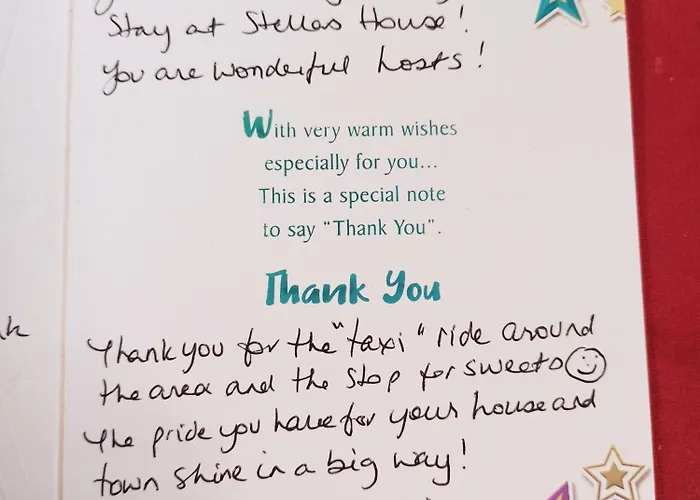 Stay at Stellas House!
You are wonderful hosts!
With very warm wishes
especially for you...
This is a special note
to say "Thank You".
Thank You
Thank you for the "taxi" ride around
the area and the stop for sweets ☺
The pride you have for your house and
town shine in a big way!